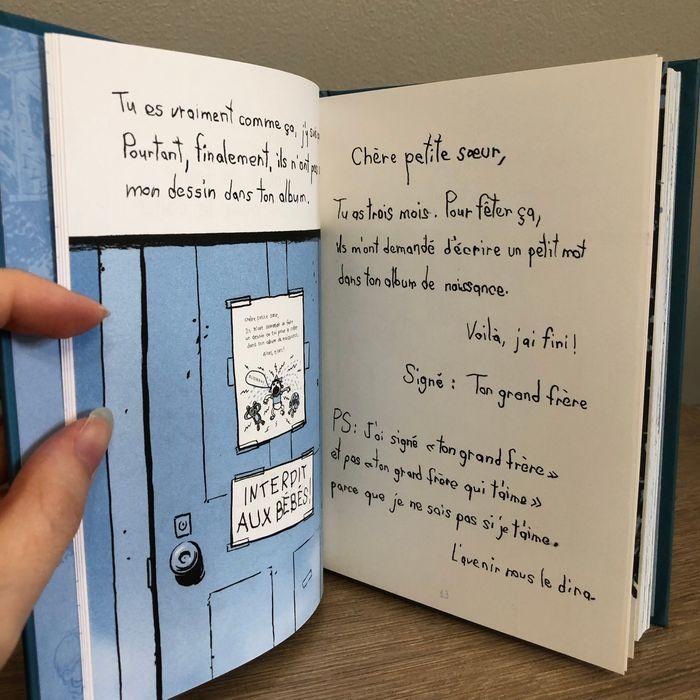 Tu es vraiment comme ça, j'y suis
Pourtant, finalement, ils n'ont pas
mon dessin dans ton album.
Chère petite sœur,
dans ton album de naissance.
INTERDIT
AUX BÉBÉS!
Chère petite sœur,
Tu as trois mois. Pour fêter ça,
ils m'ont demandé d'écrire un petit mot
dans ton album de naissance.
Voilà, j'ai fini!
Signé : Ton grand frère
PS : J'ai signé « ton grand frère »
et pas « ton grand frère qui t'aime »
parce que je ne sais pas si je t'aime.
L'avenir nous le dira.
13